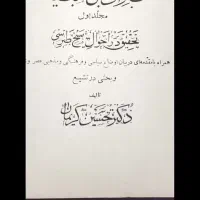 مجلد اول
تحقیق در احوال شیخ طبرسی
همراه با مقدمه‌ای در بیان اوضاع سیاسی و فرهنگی و مذهبی عصر و
و بحثی در تشیع
تألیف
دکتر حسین کریمان